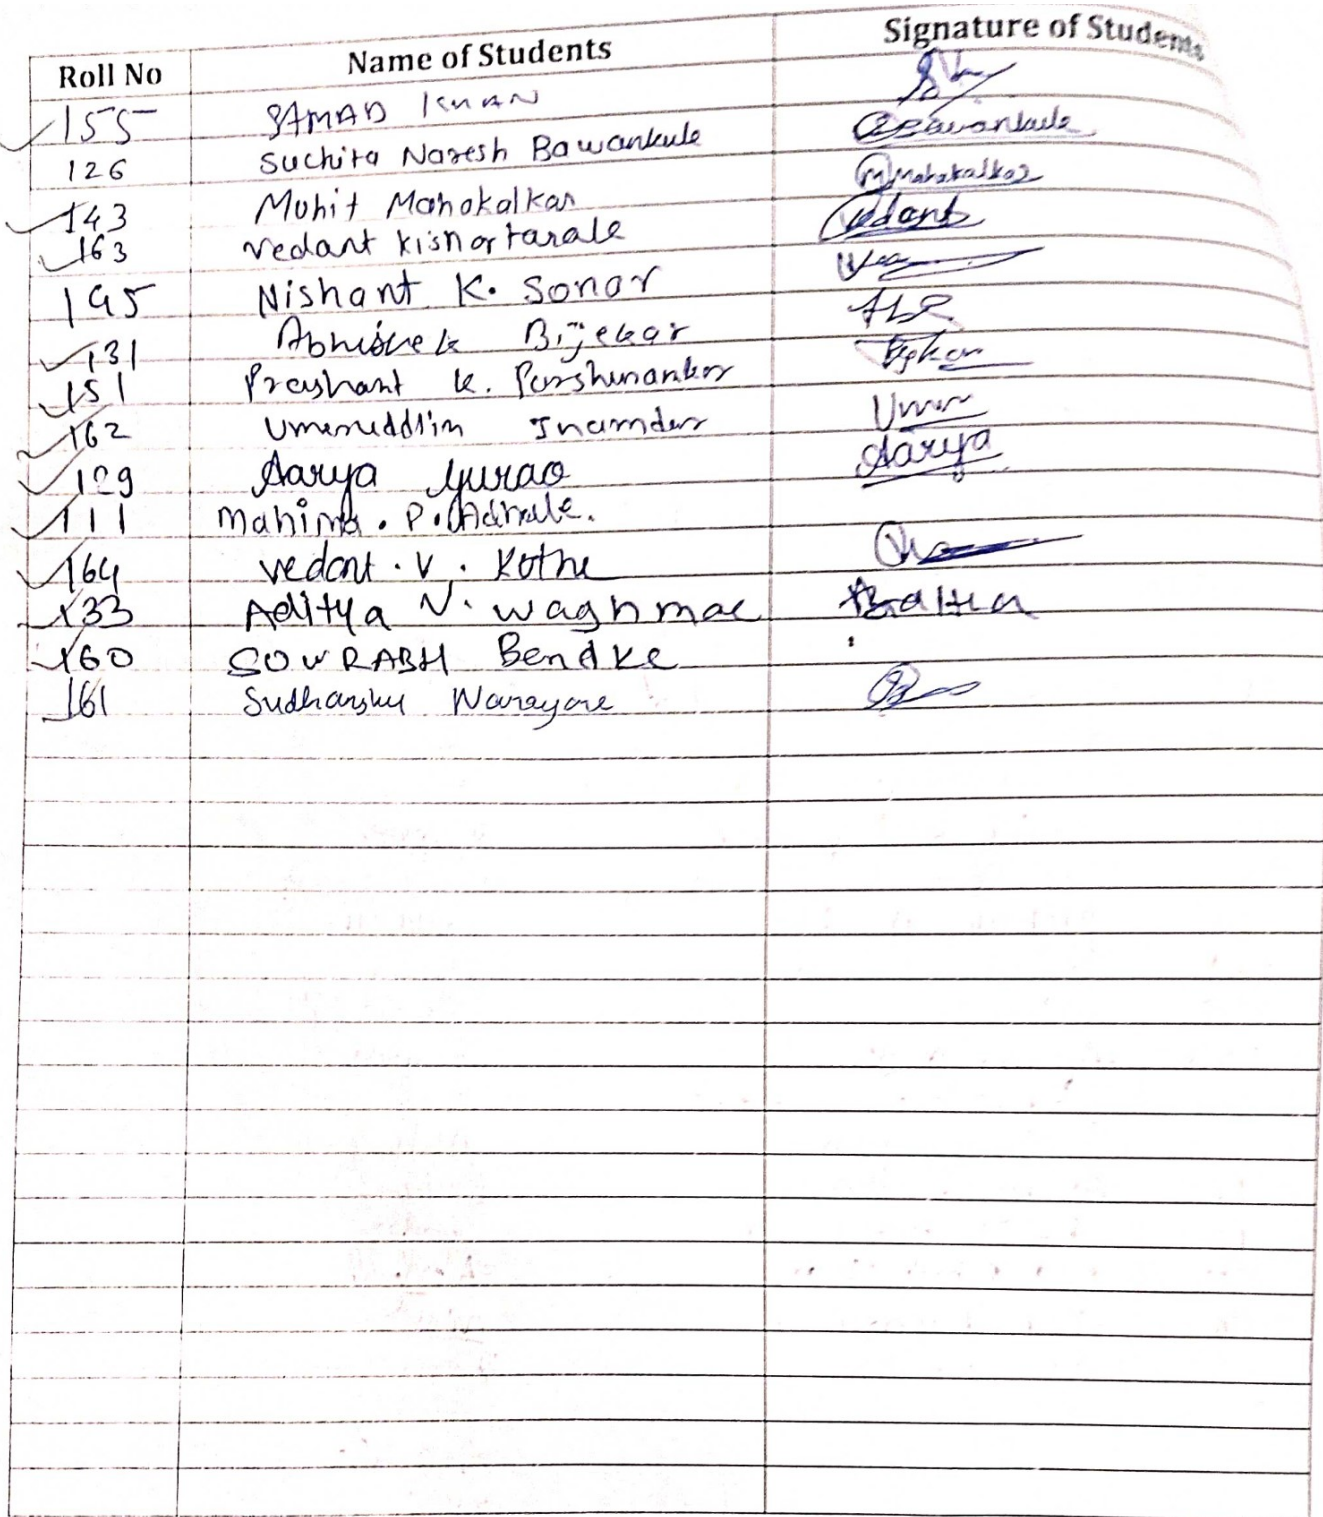 Roll No Name of Students Signature of Students
155 SAMAD KHAN
126 Suchita Naresh Bawankule Bawankule
143 Mohit Mahakalkar Mahakalkar
163 Vedant Kishor Tarale Vedant
195 Nishant K. Sonar
131 Abhishek Bijekar
151 Prashant K.
162 Umeruddin Inamdar Umer
129 Aarya Gurao Aarya
111 Mahima . P. Adhale.
164 vedant . V . Kothe
133 Aditya N. waghmae
160 SOWRABH Bendke
161 Sudhanshu